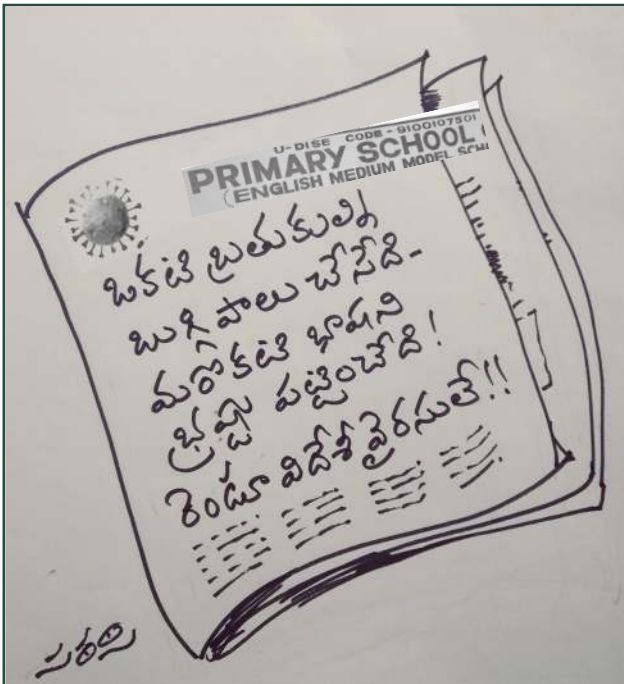 U-DISE CODE - 9100107501
PRIMARY SCHOOL
(ENGLISH MEDIUM MODEL SCH
ఒకటి బ్రతుకులిని
బుగ్గిపాలు చేసేది-
మరొకటి భాషని
భ్రష్టు పట్టించేది!
రెండూ విదేశీ వైరసులే!!
సరసి